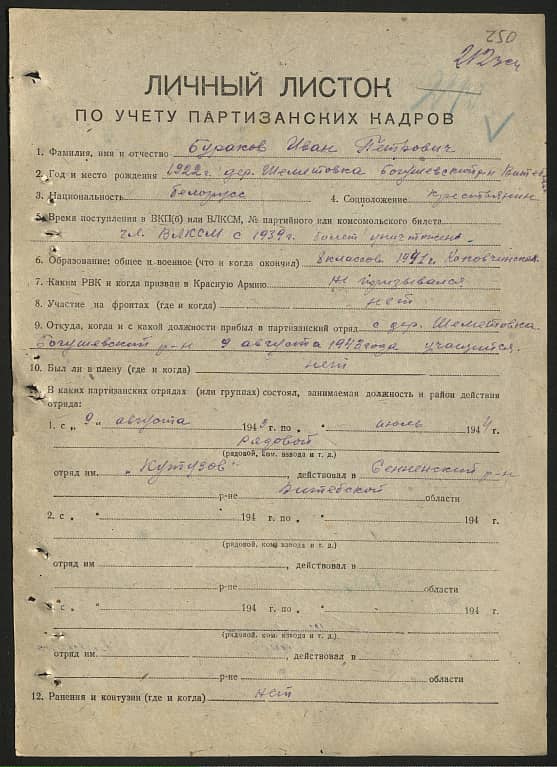 250
212
ЛИЧНЫЙ ЛИСТОК
ПО УЧЕТУ ПАРТИЗАНСКИХ КАДРОВ
1. Фамилия, имя и отчество Бураков Иван Петрович
2. Год и место рождения 1922г. дер. Шеметовка Богушевский р-н Витеб
3. Национальность белорусс 4. Соцположение крестьянин
5. Время поступления в ВКП(б) или ВЛКСМ, № партийного или комсомольского билета
чл. ВЛКСМ с 1939г. билет уничтожен
6. Образование: общее и военное (что и когда окончил) 8 классов 1941г.
7. Каким РВК и когда призван в Красную Армию не призывался
8. Участие на фронтах (где и когда) нет
9. Откуда, когда и с какой должности прибыл в партизанский отряд с дер. Шеметовка
Богушевский р-н 9 августа 1943 года учащийся.
10. Был ли в плену (где и когда) нет
11. В каких партизанских отрядах (или группах) состоял, занимаемая должность и район действия
отряда:
1. с „ 9 „ августа 1943 г. по „ июль 1944 г.
рядовой
(рядовой, ком. взвода и т. д.)
отряд им. „Кутузов“, действовал в Сенненский р-н
р-не Витебской области
2. с „ „ 194 г. по „ „ 194 г.
(рядовой, ком. взвода и т. д.)
отряд им , действовал в
р-не области
3. с „ „ 194 г. по „ „ 194 г.
(рядовой, ком. взвода и т. д.)
отряд им. , действовал в
р-не области
12. Ранения и контузии (где и когда) нет